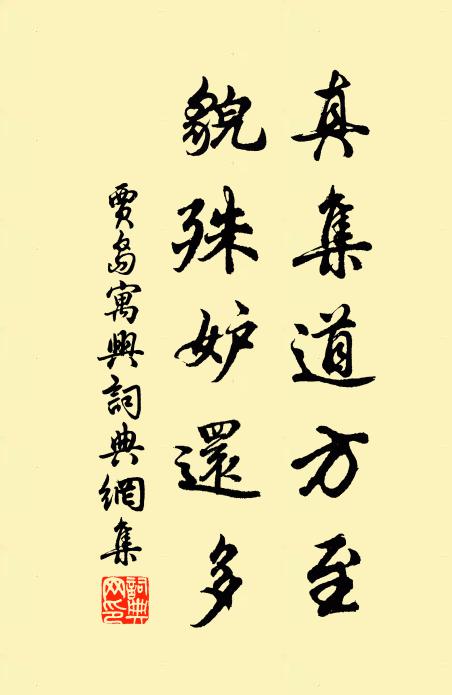 真集道方至
貌殊妒還多
賈島寓興詞典網集
詞典网印